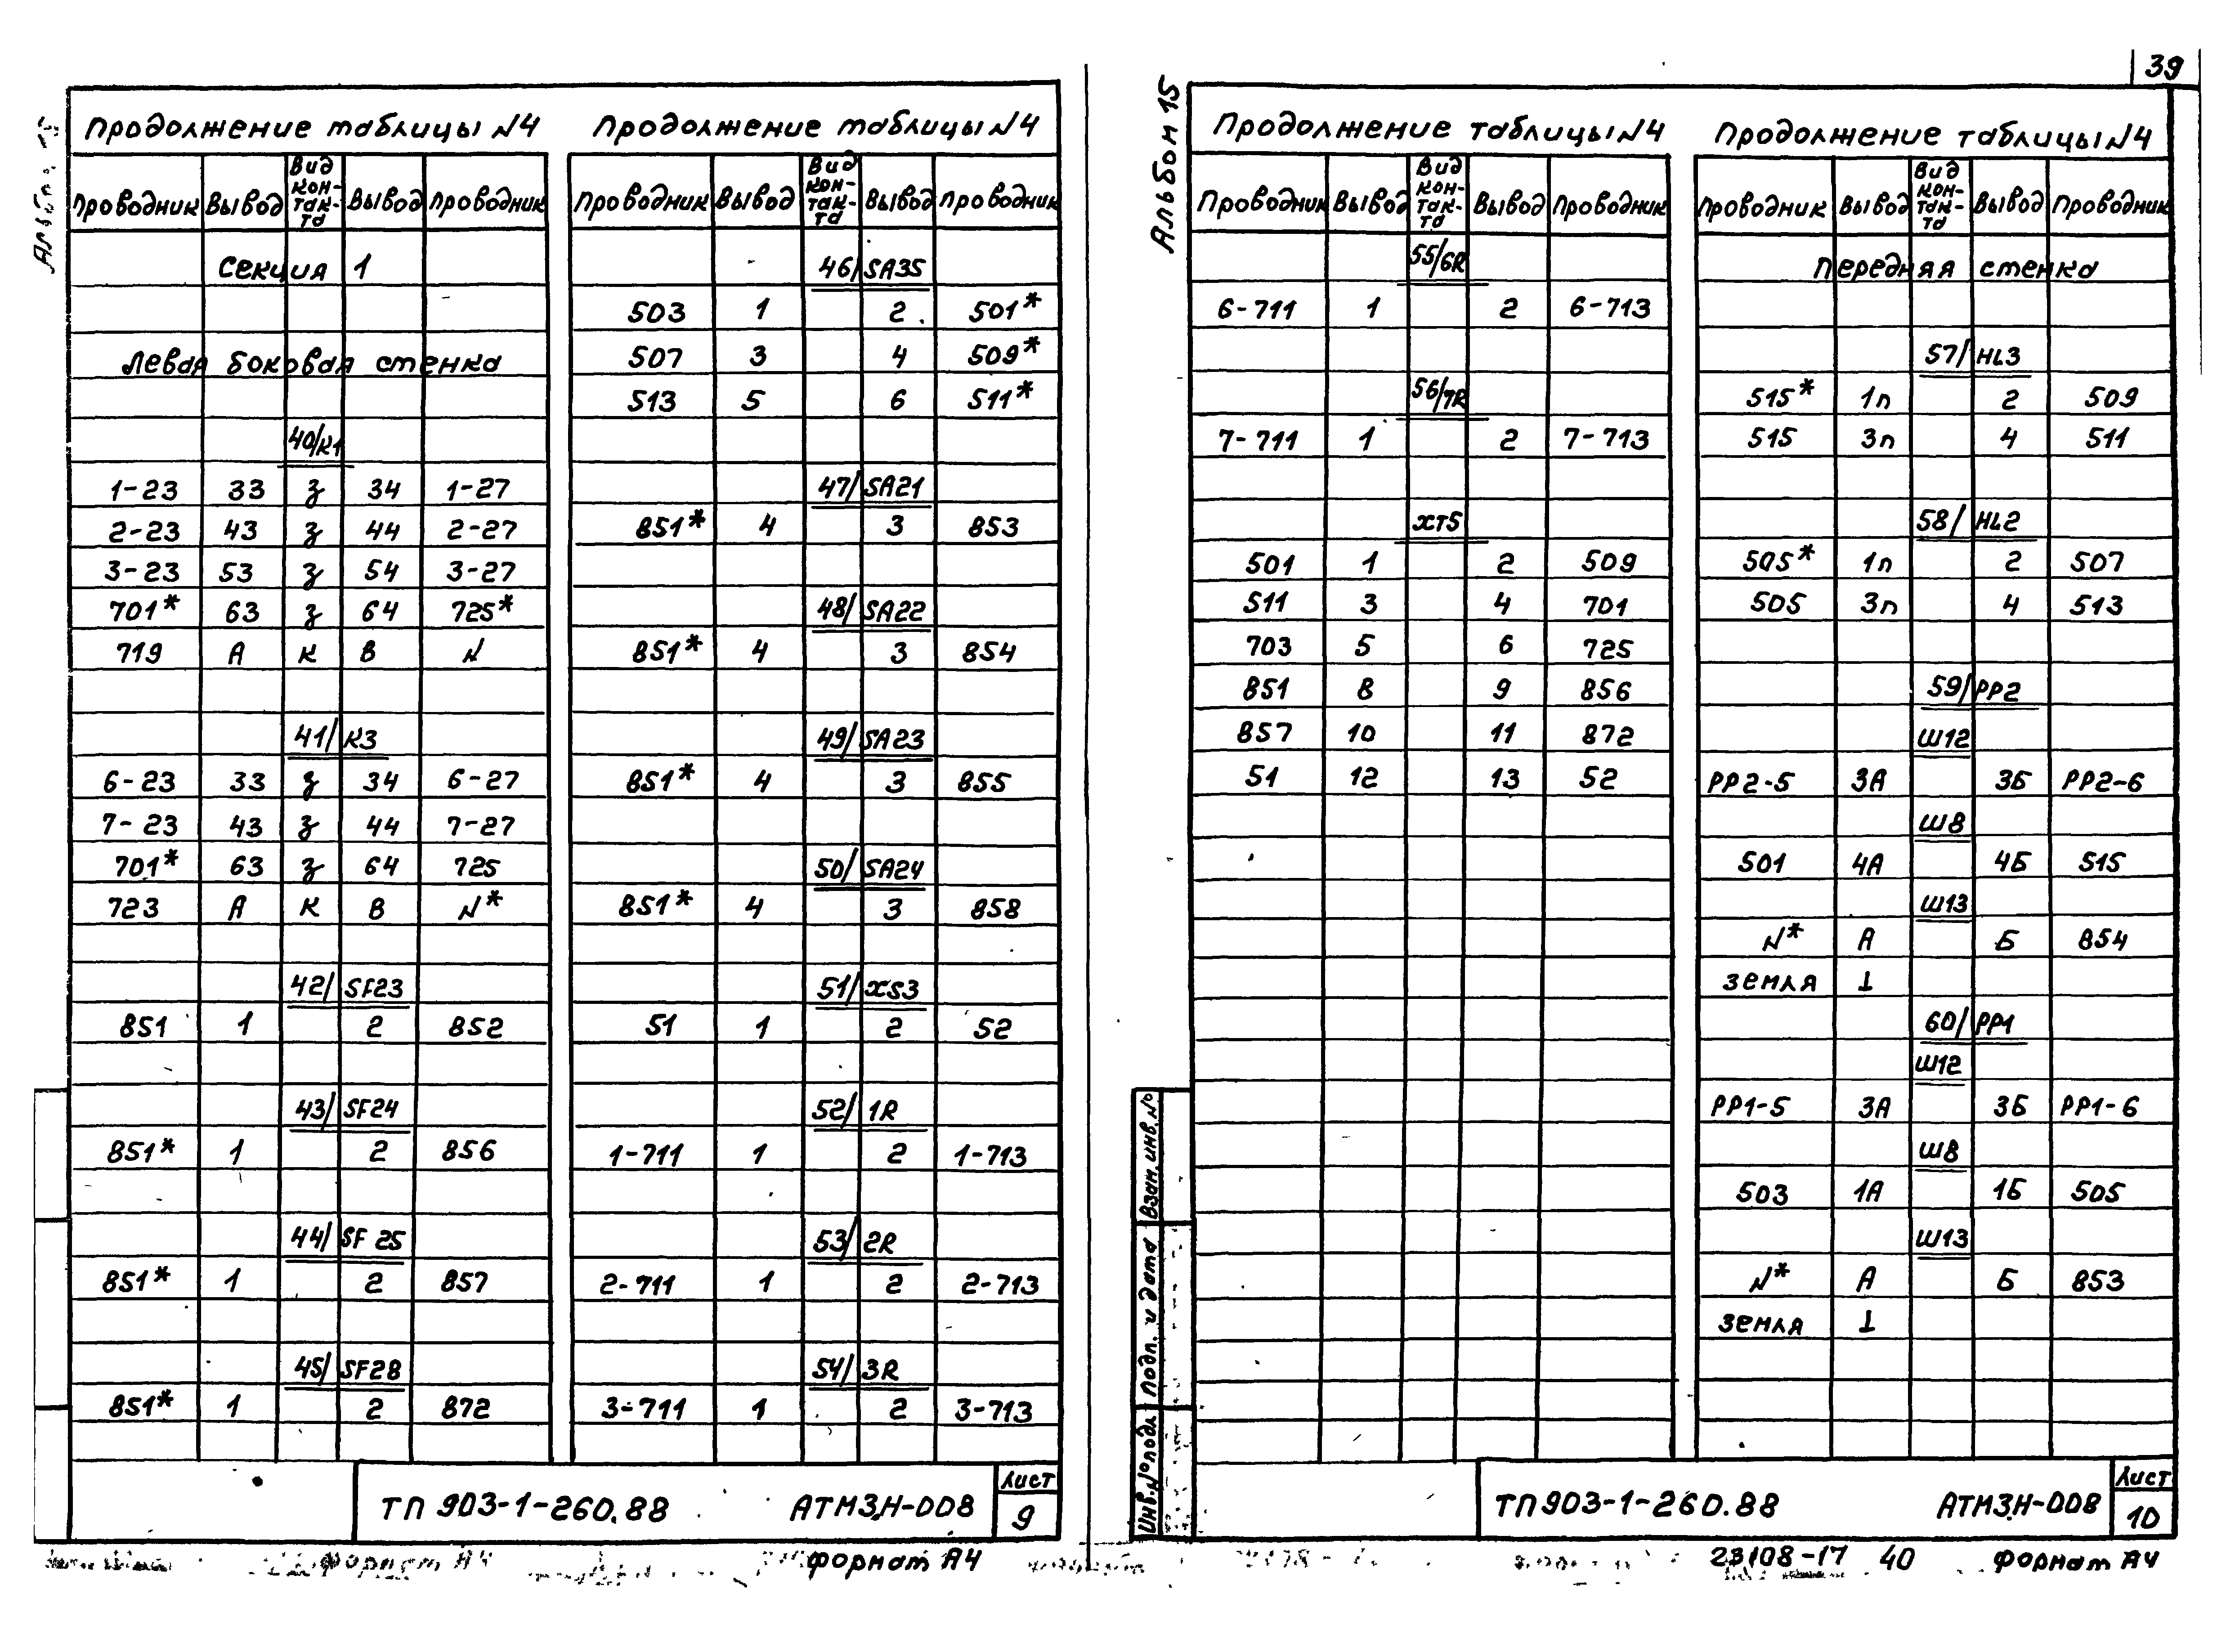 39
Альбом 15
Продолжение таблицы N4
Проводник Вывод Вид кон-так-та Вывод Проводник
Секция 1
Левая боковая стенка
40/К1
1-23 33 з 34 1-27
2-23 43 з 44 2-27
3-23 53 з 54 3-27
701* 63 з 64 725*
719 А К В N
41/К3
6-23 33 з 34 6-27
7-23 43 з 44 7-27
701* 63 з 64 725
723 А К В N*
42/SF23
851 1 2 852
43/SF24
851* 1 2 856
44/SF25
851* 1 2 857
45/SF28
851* 1 2 872
Продолжение таблицы N4
Проводник Вывод Вид кон-так-та Вывод Проводник
46/SA35
503 1 2 501*
507 3 4 509*
513 5 6 511*
47/SA21
851* 4 3 853
48/SA22
851* 4 3 854
49/SA23
851* 4 3 855
50/SA24
851* 4 3 858
51/XS3
51 1 2 52
52/1R
1-711 1 2 1-713
53/2R
2-711 1 2 2-713
54/3R
3-711 1 2 3-713
ТП 903-1-260.88 АТМЗ.Н-008
Лист
9
Формат А4
Формат А4
Альбом 15
Продолжение таблицы N4
Проводник Вывод Вид кон-так-та Вывод Проводник
55/6R
6-711 1 2 6-713
56/7R
7-711 1 2 7-713
XT5
501 1 2 509
511 3 4 701
703 5 6 725
851 8 9 856
857 10 11 872
51 12 13 52
Продолжение таблицы N4
Проводник Вывод Вид кон-так-та Вывод Проводник
Передняя стенка
57/HL3
515* 1п 2 509
515 3п 4 511
58/HL2
505* 1п 2 507
505 3п 4 513
59/РР2
Ш12
РР2-5 3А 3Б РР2-6
Ш8
501 4А 4Б 515
Ш13
N* А Б 854
земля ⊥
60/РР1
Ш12
РР1-5 3А 3Б РР1-6
Ш8
503 1А 1Б 505
Ш13
N* А Б 853
земля ⊥
Инв.№подл. Подп. и дата Взам.инв.№
ТП 903-1-260.88 АТМЗ.Н-008
Лист
10
23108-17 40 Формат А4